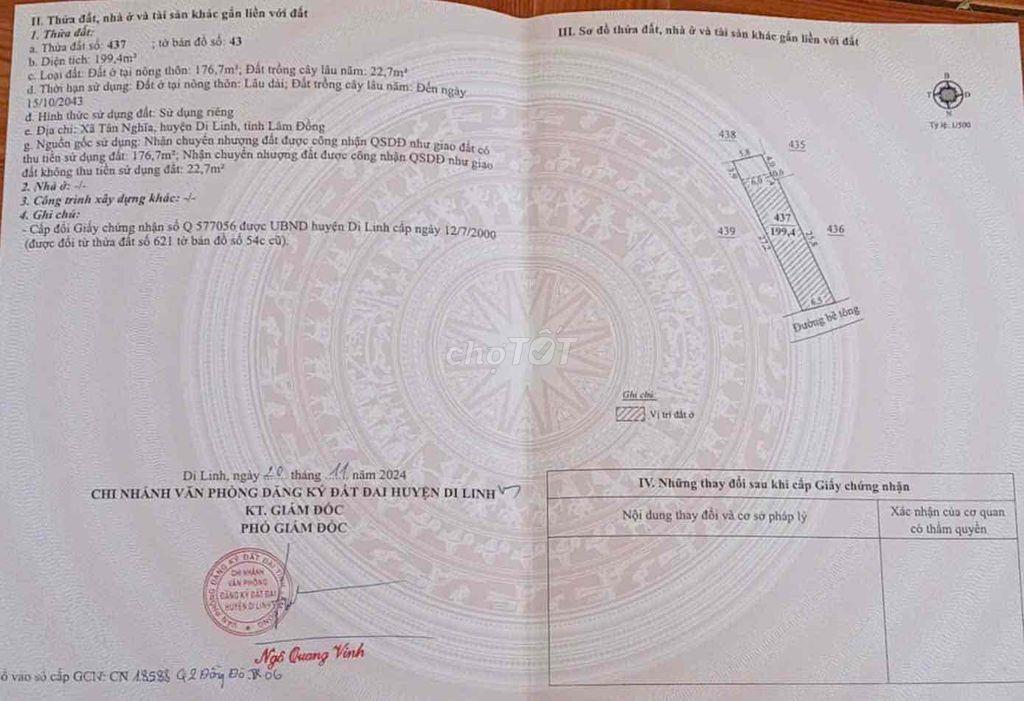 II. Thửa đất, nhà ở và tài sản khác gắn liền với đất
1. Thửa đất:
a. Thửa đất số: 437 ; tờ bản đồ số: 43
b. Diện tích: 199,4m²
c. Loại đất: Đất ở tại nông thôn: 176,7m²; Đất trồng cây lâu năm: 22,7m²
d. Thời hạn sử dụng: Đất ở tại nông thôn: Lâu dài; Đất trồng cây lâu năm: Đến ngày
15/10/2043
đ. Hình thức sử dụng đất: Sử dụng riêng
e. Địa chỉ: Xã Tân Nghĩa, huyện Di Linh, tỉnh Lâm Đồng
g. Nguồn gốc sử dụng: Nhận chuyển nhượng đất được công nhận QSDĐ như giao đất có
thu tiền sử dụng đất: 176,7m²; Nhận chuyển nhượng đất được công nhận QSDĐ như giao
đất không thu tiền sử dụng đất: 22,7m²
2. Nhà ở: -/-
3. Công trình xây dựng khác: -/-
4. Ghi chú:
- Cấp đổi Giấy chứng nhận số Q 577056 được UBND huyện Di Linh cấp ngày 12/7/2000
(được đổi từ thửa đất số 621 tờ bản đồ số 54c cũ).
Di Linh, ngày 20 tháng 11 năm 2024
CHI NHÁNH VĂN PHÒNG ĐĂNG KÝ ĐẤT ĐAI HUYỆN DI LINH
KT. GIÁM ĐỐC
PHÓ GIÁM ĐỐC
CHI NHÁNH
VĂN PHÒNG
ĐĂNG KÝ ĐẤT ĐAI
HUYỆN DI LINH
Ngô Quang Vinh
ổ vào sổ cấp GCN: CN 18588
III. Sơ đồ thửa đất, nhà ở và tài sản khác gắn liền với đất
B
T
D
N
Tỷ lệ: 1/500
438
435
5,8
4,0
3,9
6,0
0,6
437
199,4
439
436
27,2
25,8
6,5
Đường bê tông
chợTỐT
Ghi chú:
Vị trí đất ở
IV. Những thay đổi sau khi cấp Giấy chứng nhận
Nội dung thay đổi và cơ sở pháp lý
Xác nhận của cơ quan
có thẩm quyền